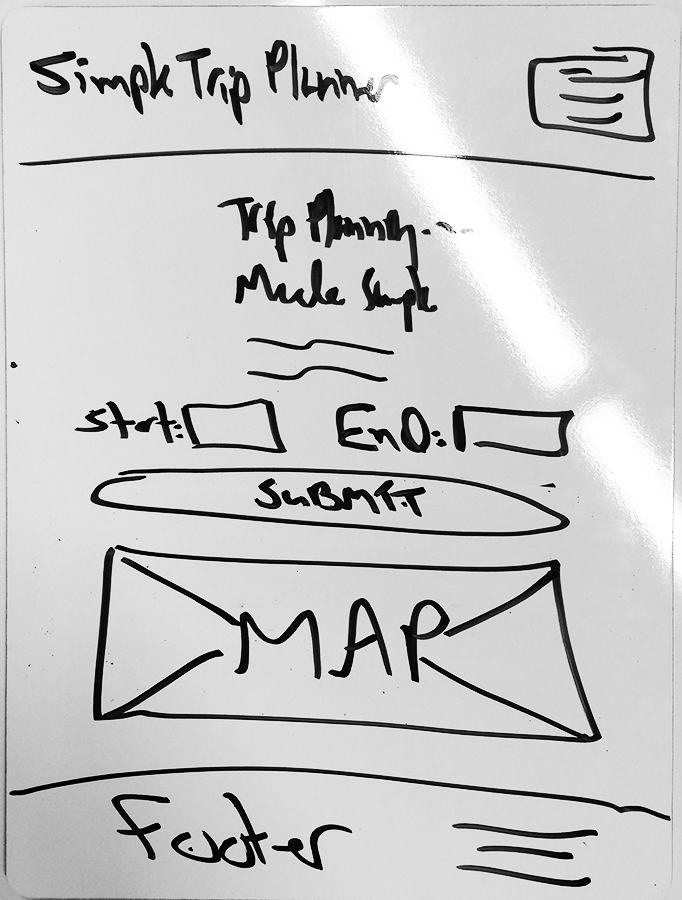 Simple Trip Planner
Trip Planning...
Made Simple
Start: End:
SUBMIT
MAP
Footer